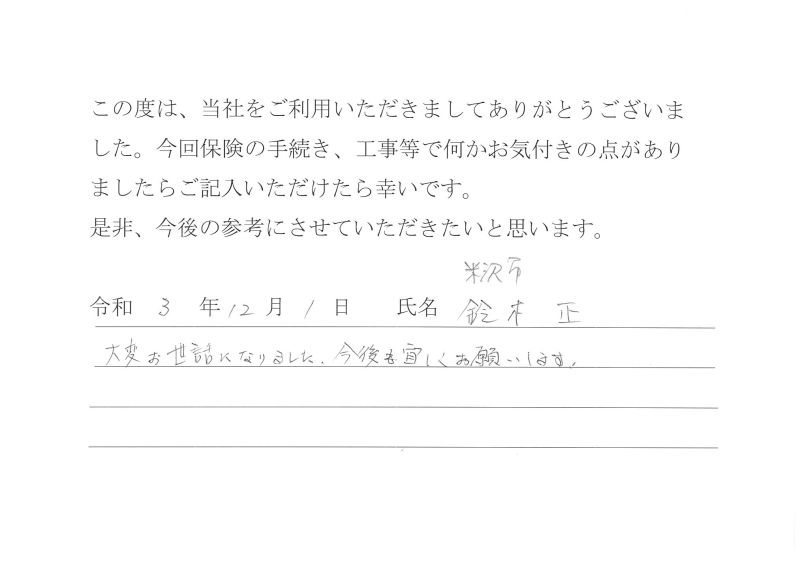 この度は、当社をご利用いただきましてありがとうございま
した。今回保険の手続き、工事等で何かお気付きの点があり
ましたらご記入いただけたら幸いです。
是非、今後の参考にさせていただきたいと思います。
米沢市
令和 3 年 12 月 1 日 氏名 鈴木 正
大変お世話になりました、今後も宜しくお願いします。